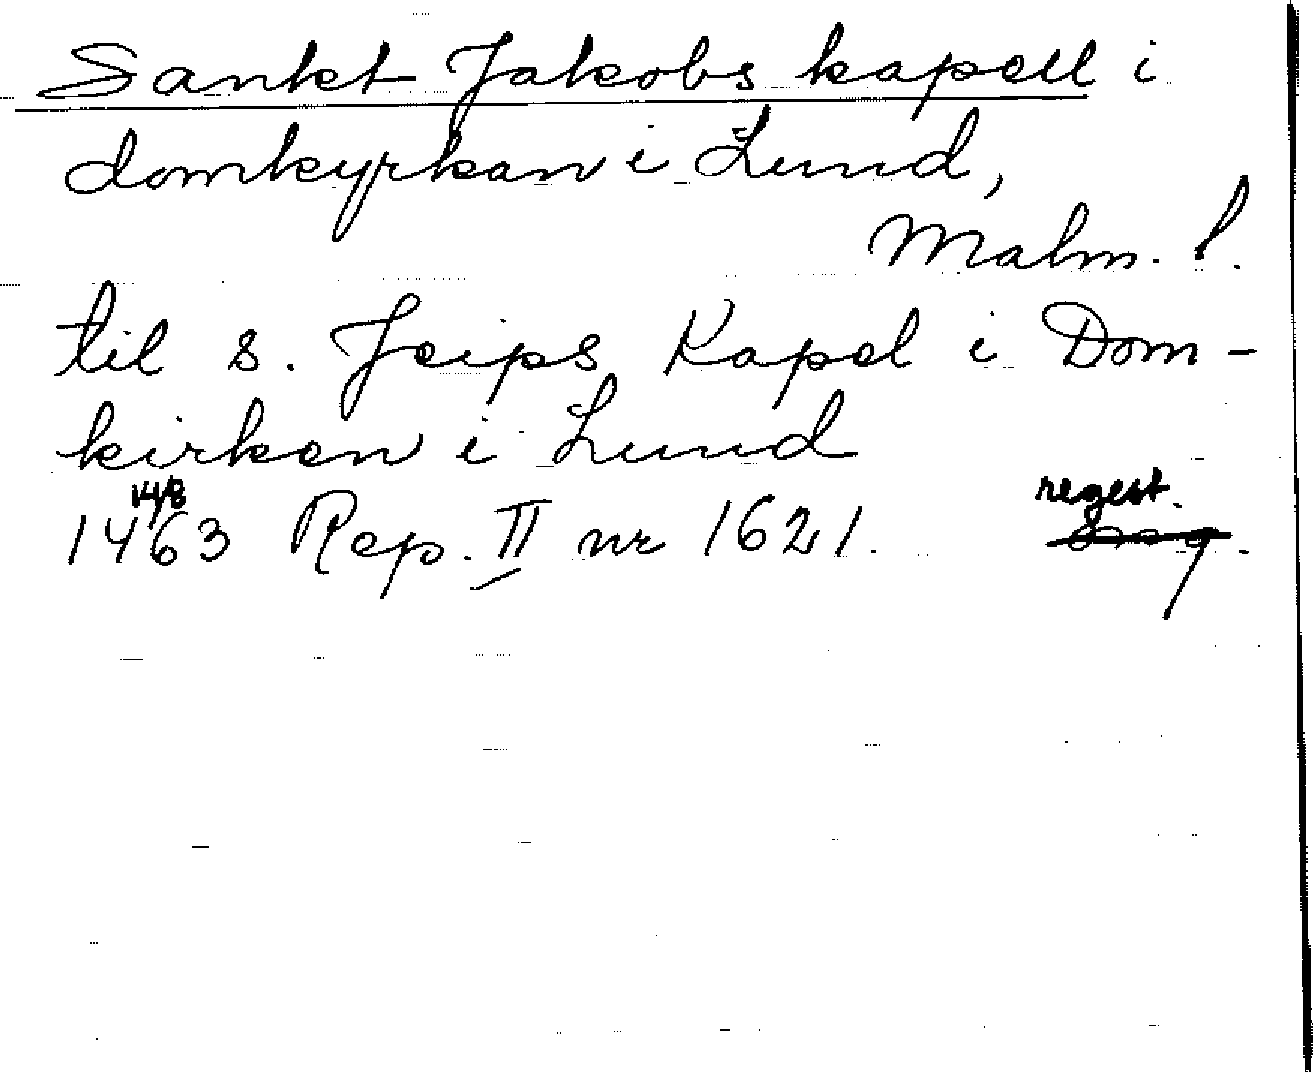 Sankt Jakobs kapell i
domkyrkan i Lund,
Malm. l.
til s. Jeips Kapel i Dom-
kirken i Lund
14/8 regest.
1463 Rep. II nr 1621.